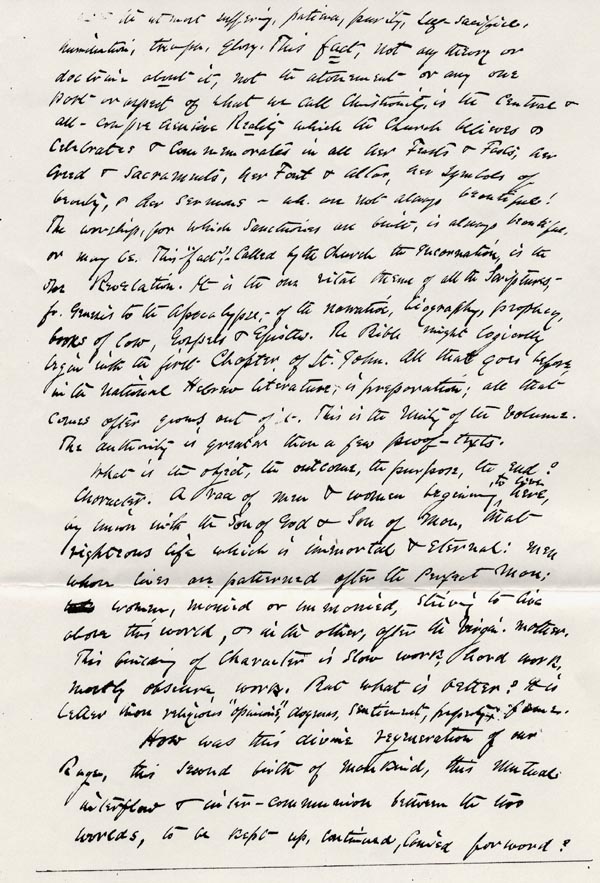 its utmost suffering, patience, purity, self-sacrifice,
humiliation, triumph, glory. This fact, not any theory or
doctrine about it, not the atonement or any one
part or aspect of what we call Christianity, is the central &
all-comprehensive Reality which the Church believes &
celebrates & commemorates in all her Feasts & Fasts, her
Creed & Sacraments, her Font & altar, her symbols of
beauty, & her sermons - wh. are not always beautiful!
The worship, for which Sanctuaries are built, is always beautiful,
or may be. This "fact", called by the Church the Incarnation, is the
one Revelation. It is the one vital theme of all the Scriptures,-
fr. Genesis to the Apocalypse,- of the narration, biography, prophecy,
books of law, Gospels & Epistles. The Bible might logically
begin with the first Chapter of St. John. All that goes before
in the national Hebrew literature, is preparation; all that
comes after grows out of it. This is the Unity of the Volume.
The authority is greater than a few proof-texts.
What is the object, the outcome, the purpose, the end?
Character. A race of men & women beginning to live here,
by union with the Son of God & Son of Man, that
righteous life which is immortal & Eternal: men
whose lives are patterned after the Perfect Man;
women, married or unmarried, striving to live
above this world, & in the other, after the Virgin-mother.
This building of Character is slow work, hard work,
mostly obscure work. But what is better? It is
better than religious "opinions", dogmas, sentiment, property, fame.
How was this divine regeneration of our
Race, this second birth of mankind, this mutual
interflow & inter-communion between the two
worlds, to be kept up, continued, carried forward?